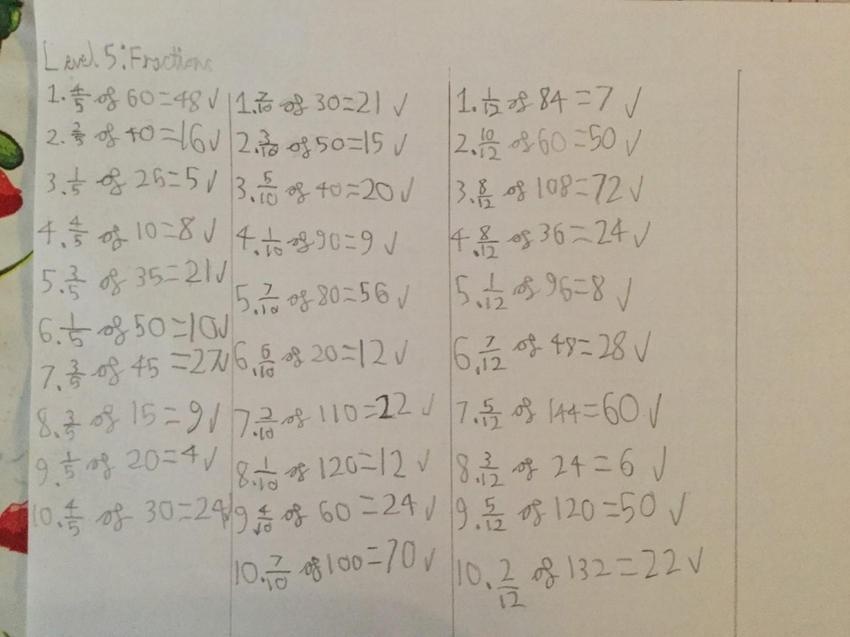 Level 5: Fractions
1. 4/5 of 60=48 ✓
2. 2/5 of 40=16 ✓
3. 1/5 of 25=5 ✓
4. 4/5 of 10=8 ✓
5. 3/5 of 35=21 ✓
6. 1/5 of 50=10 ✓
7. 3/5 of 45=27 ✓
8. 3/5 of 15=9 ✓
9. 1/5 of 20=4 ✓
10. 4/5 of 30=24 ✓
1. 7/10 of 30=21 ✓
2. 3/10 of 50=15 ✓
3. 5/10 of 40=20 ✓
4. 1/10 of 90=9 ✓
5. 7/10 of 80=56 ✓
6. 6/10 of 20=12 ✓
7. 2/10 of 110=22 ✓
8. 1/10 of 120=12 ✓
9. 4/10 of 60=24 ✓
10. 7/10 of 100=70 ✓
1. 1/12 of 84=7 ✓
2. 10/12 of 60=50 ✓
3. 8/12 of 108=72 ✓
4. 8/12 of 36=24 ✓
5. 1/12 of 96=8 ✓
6. 7/12 of 48=28 ✓
7. 5/12 of 144=60 ✓
8. 3/12 of 24=6 ✓
9. 5/12 of 120=50 ✓
10. 2/12 of 132=22 ✓